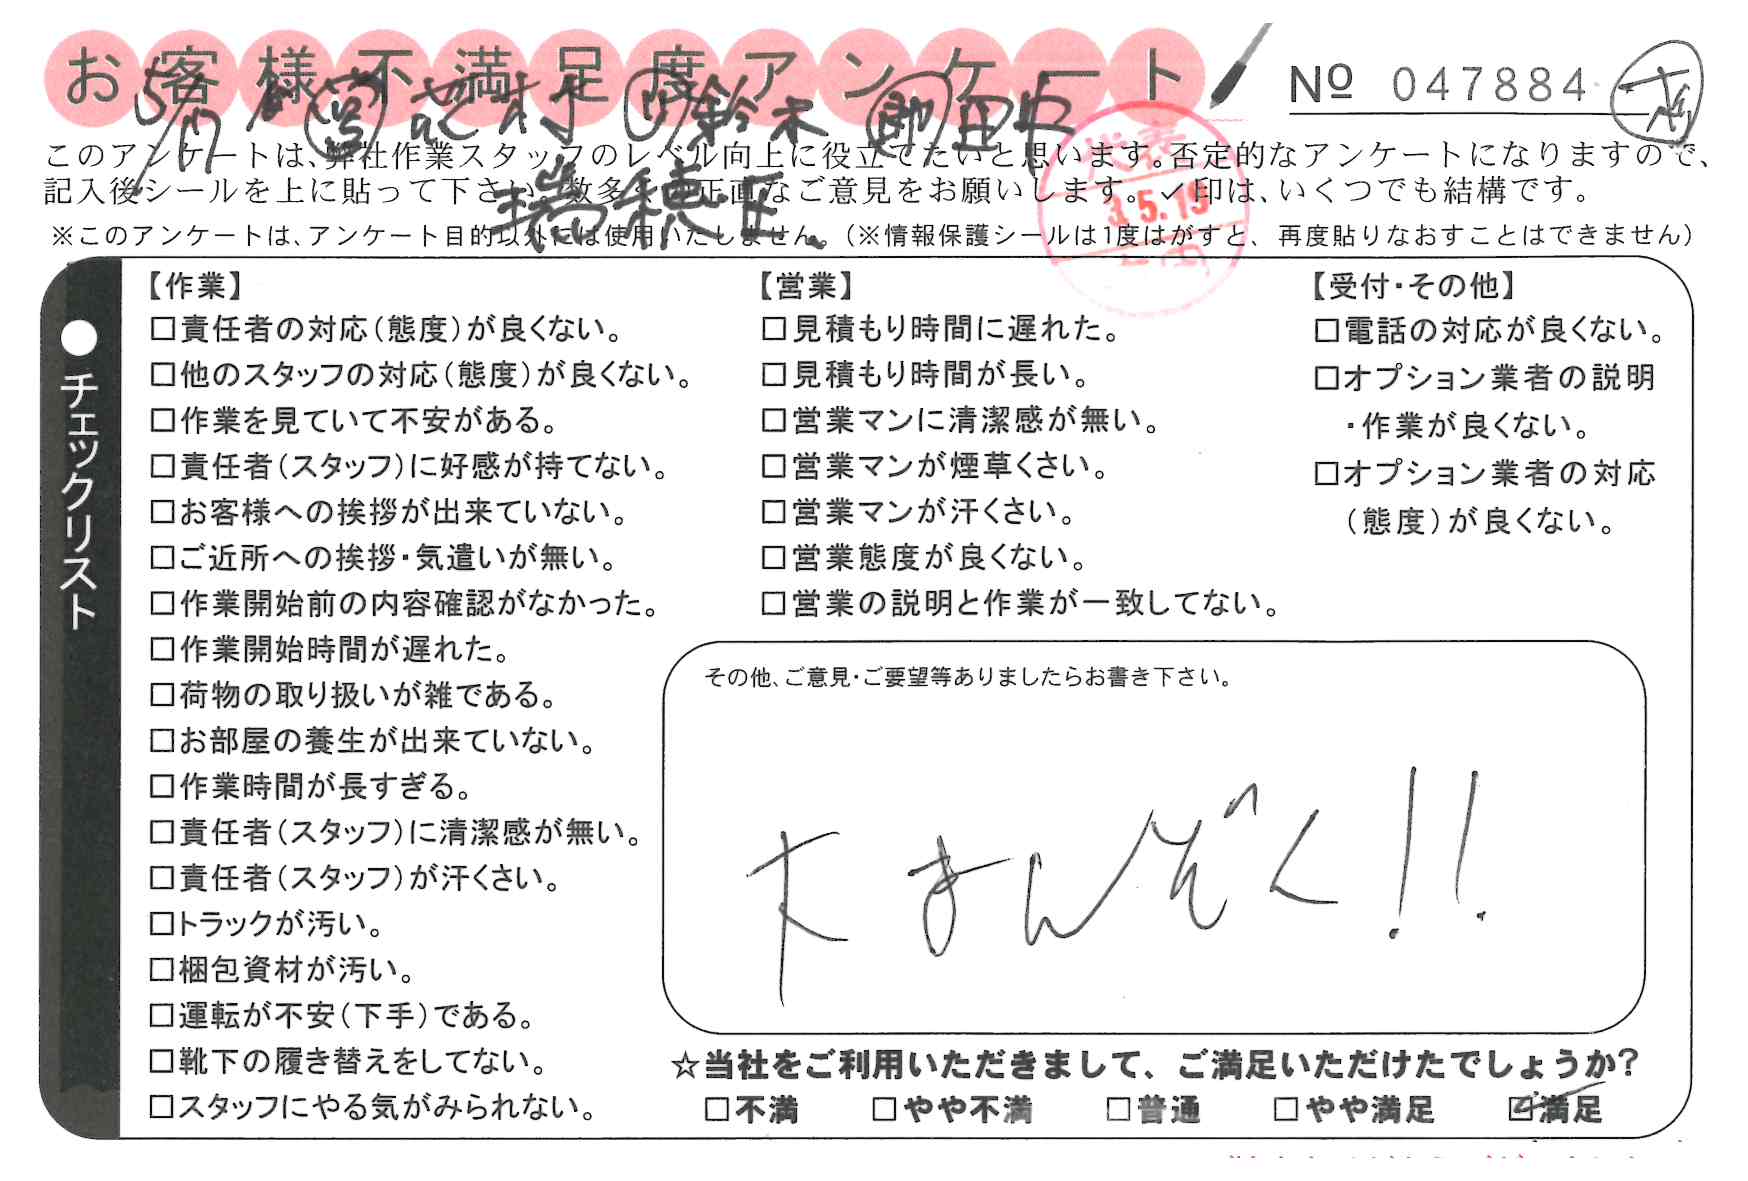 お客様不満足度アンケート
Nº 047884
5/17 営 志村 鈴木 即 田中
瑞穂区
代表
5.19
このアンケートは、弊社作業スタッフのレベル向上に役立てたいと思います。否定的なアンケートになりますので、
記入後シールを上に貼って下さい。数多くの正直なご意見をお願いします。✓印は、いくつでも結構です。
※このアンケートは、アンケート目的以外には使用いたしません。（※情報保護シールは1度はがすと、再度貼りなおすことはできません）
●チェックリスト
【作業】
□責任者の対応（態度）が良くない。
□他のスタッフの対応（態度）が良くない。
□作業を見ていて不安がある。
□責任者（スタッフ）に好感が持てない。
□お客様への挨拶が出来ていない。
□ご近所への挨拶・気遣いが無い。
□作業開始前の内容確認がなかった。
□作業開始時間が遅れた。
□荷物の取り扱いが雑である。
□お部屋の養生が出来ていない。
□作業時間が長すぎる。
□責任者（スタッフ）に清潔感が無い。
□責任者（スタッフ）が汗くさい。
□トラックが汚い。
□梱包資材が汚い。
□運転が不安（下手）である。
□靴下の履き替えをしてない。
□スタッフにやる気がみられない。
【営業】
□見積もり時間に遅れた。
□見積もり時間が長い。
□営業マンに清潔感が無い。
□営業マンが煙草くさい。
□営業マンが汗くさい。
□営業態度が良くない。
□営業の説明と作業が一致してない。
【受付・その他】
□電話の対応が良くない。
□オプション業者の説明
・作業が良くない。
□オプション業者の対応
（態度）が良くない。
その他、ご意見・ご要望等ありましたらお書き下さい。
大まんぞく!!
☆当社をご利用いただきまして、ご満足いただけたでしょうか？
□不満 □やや不満 □普通 □やや満足 ☑満足